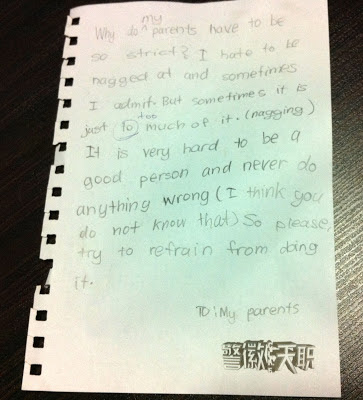 my
Why do ^ parents have to be
so strict? I hate to be
nagged at and sometimes
I admit. But sometimes it is
too
just to much of it. (nagging)
It is very hard to be a
good person and never do
anything wrong (I think you
do not know that) So please,
try to refrain from doing
it.
TO: My parents
警徽天职